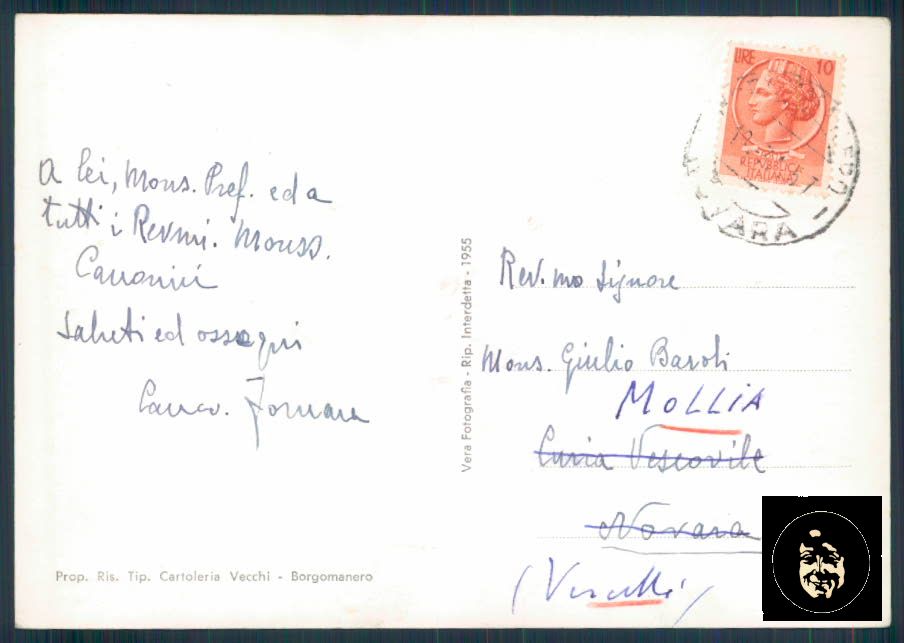 A lei, Mons. Pref. ed a
tutti i Rev.mi. Monss.
Canonici
Saluti ed ossequi
Canco. Fornara
Prop. Ris. Tip. Cartoleria Vecchi - Borgomanero
Vera Fotografia - Rip. Interdetta - 1955
LIRE 10
REPUBBLICA
ITALIANA
Rev.mo Signore
Mons. Giulio Baroli
MOLLIA
Curia Vescovile
Novara
(Vercelli)